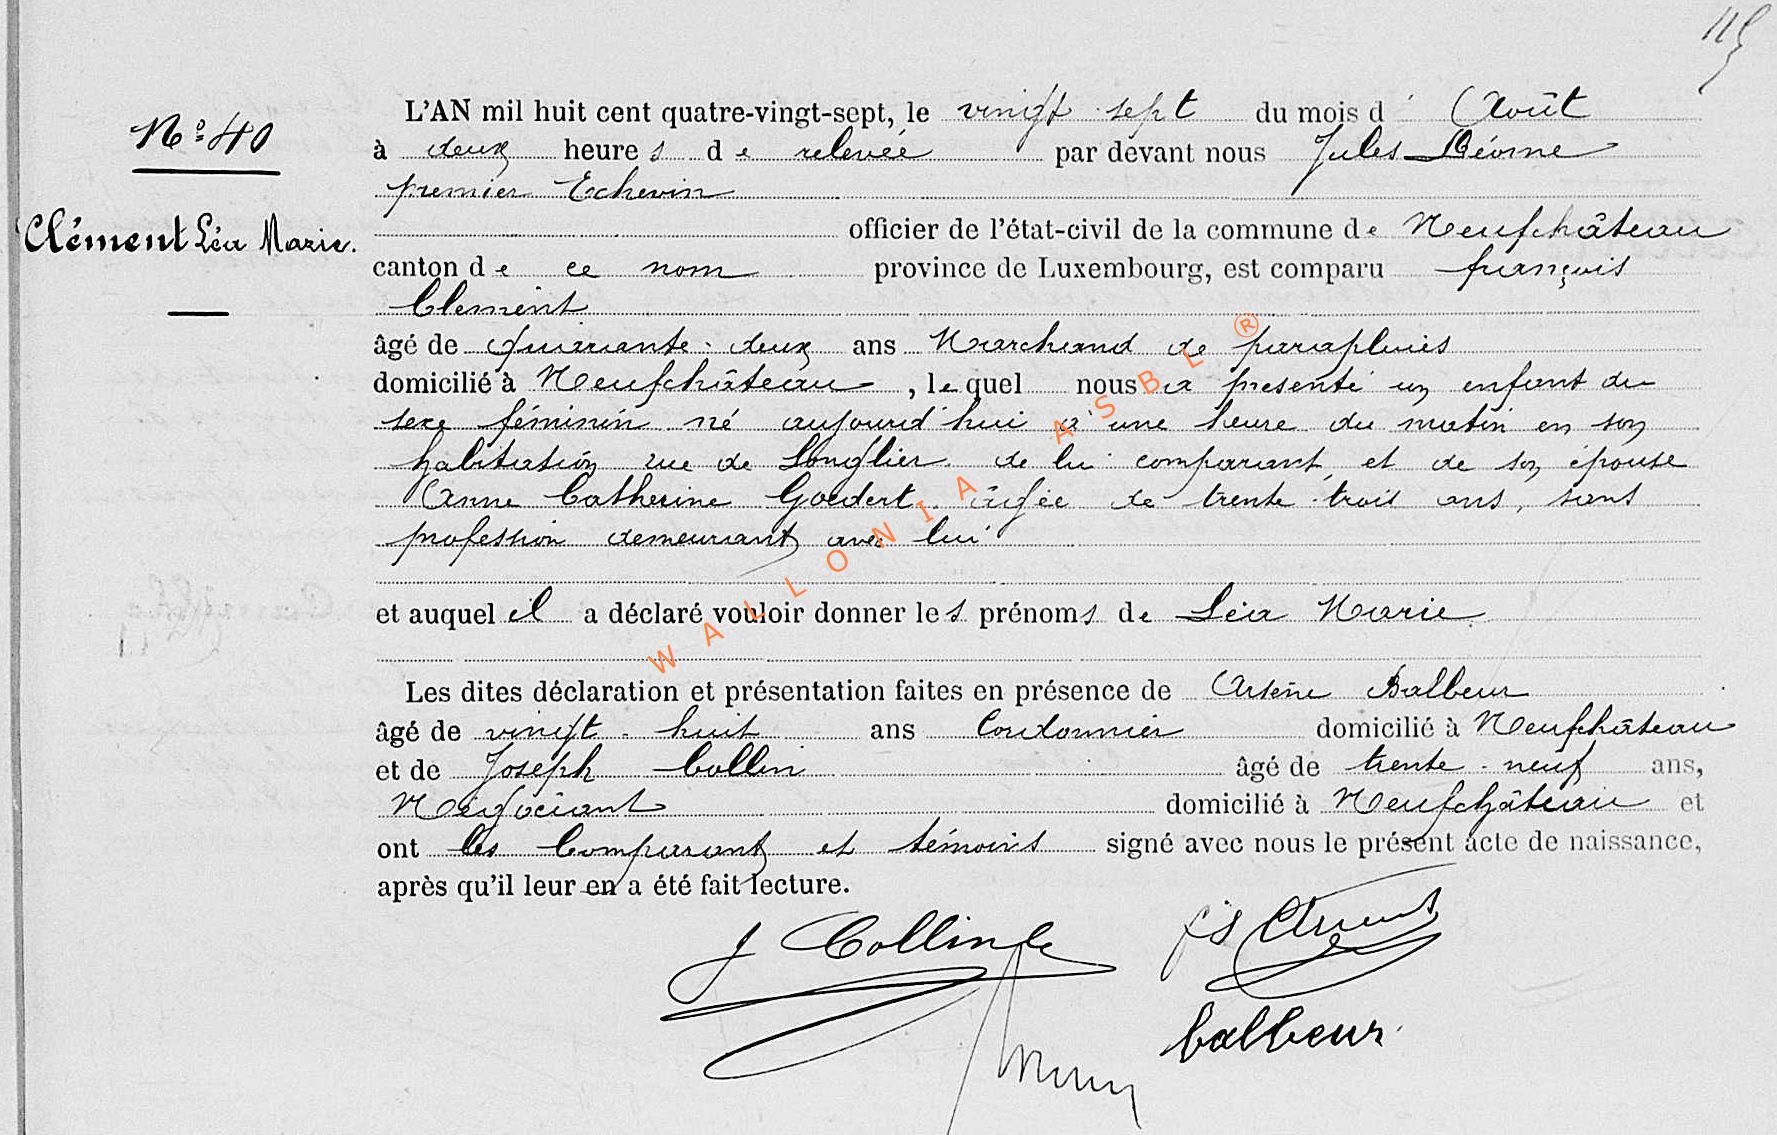 115
N° 40
Clément Léa Marie.
L'AN mil huit cent quatre-vingt-sept, le vingt-sept du mois d' Août
à deux heures de relevée par devant nous Jules Léonne
premier Echevin
officier de l'état-civil de la commune de Neufchâteau
canton de ce nom province de Luxembourg, est comparu françois
Clement
âgé de quarante-deux ans Marchand de parapluies
domicilié à Neufchâteau, lequel nous a presenté un enfant du
sexe féminin né aujourd'hui à une heure du matin en son
habitation rue de Longlier de lui comparant et de son épouse
Anne Catherine Goedert âgée de trente-trois ans, sans
profession demeurant avec lui
et auquel il a déclaré vouloir donner les prénoms de Léa Marie
Les dites déclaration et présentation faites en présence de Arsène Balbeur
âgé de vingt-huit ans Cordonnier domicilié à Neufchâteau
et de Joseph Collin âgé de trente-neuf ans,
Negociant domicilié à Neufchâteau et
ont les Comparant et témoins signé avec nous le présent acte de naissance,
après qu'il leur en a été fait lecture.
J Collin fs Clement
balbeur
WALLONIA ASBL ®